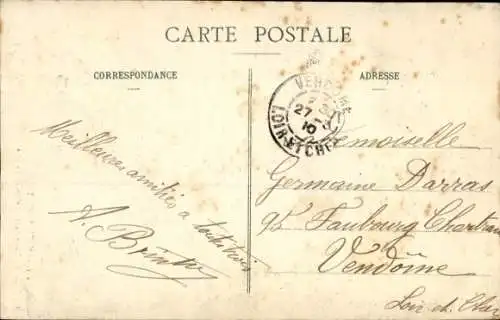 CARTE POSTALE
CORRESPONDANCE
ADRESSE
VENDOME
27
10
LOIR-ET-CHER
Meilleures amitiés à toutes trois
A.
Mademoiselle
Germaine Darras
95 Faubourg Chartrain
Vendôme
Loir et Cher